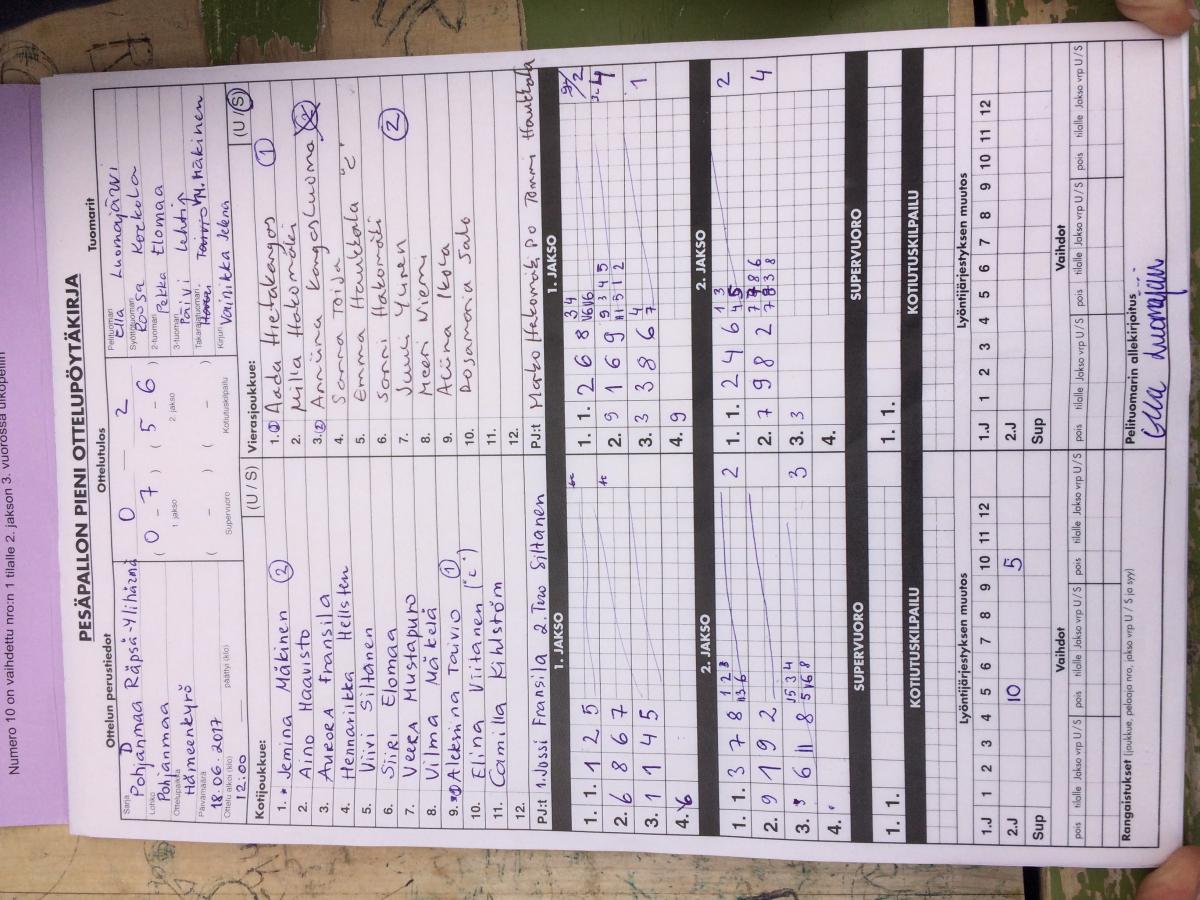 Numero 10 on vaihdettu nro:n 1 tilalle 2. jakson 3. vuorossa ulkopeliin
PESÄPALLON PIENI OTTELUPÖYTÄKIRJA
Ottelun perustiedot
Sarja
D
Pohjanmaa Räpsä-Ylihärmä
Lohko
Pohjanmaa
Ottelupaikka
Hämeenkyrö
Päivämäärä
18.06.2017
Ottelu alkoi (klo)
12:00
päättyi (klo)
Ottelutulos
0 2
( 0 - 7 ) ( 5 - 6 )
1 jakso 2 jakso
( - ) ( - )
Supervuoro Kotiutuskilpailu
Tuomarit
Pelituomari
Ella Luomajärvi
Syöttötuomari
Roosa Korkola
2-tuomari
Pekka Elomaa
3-tuomari
Päivi Lehti
Takarajatuomari
M. Mäkinen
Kirjuri
Vainikka Jelena
Kotijoukkue: (U / S)
1. * Jemina Mäkinen 2
2. Aino Haavisto
3. Aurora Fransila
4. Hennariikka Hellsten
5. Viivi Siltanen
6. Siiri Elomaa
7. Veera Mustapuro
8. Vilma Mäkelä
9. Aleksina Taivio 1
10. Elina Viitanen ("c")
11. Camilla Kihlström
12.
PJ:t 1. Jussi Fransila 2. Tero Siltanen
Vierasjoukkue: (U / S)
1. Aada Hietakangas 1
2. Milla Hakomäki
3. Anniina Kangasluoma
4. Sanna Toija
5. Emma Hautkola "c"
6. Sonni Hakomäki
7. Juuli Ylinen 2
8. Meeri Niemi
9. Aliina Ikola
10. Rosamaria Salo
11.
12.
PJ:t Marko Hakomäki, PO Tommi Hautkola
1. JAKSO
1. 1. 1 2 5
2. 6 8 6 7
3. 1 1 4 5
4. 6
1. JAKSO
1. 1. 2 6 8
2. 9 1 6 9
3. 3 3 8 6 1
4. 9
2. JAKSO
1. 1. 3 7 8 2
2. 9 1 9 2
3. 6 11 8 3
4.
2. JAKSO
1. 1. 2 4 6 2
2. 7 9 8 2 4
3. 3
4.
SUPERVUORO
1. 1.
SUPERVUORO
1. 1.
KOTIUTUSKILPAILU
KOTIUTUSKILPAILU
Lyöntijärjestyksen muutos
1.J 1 2 3 4 5 6 7 8 9 10 11 12
2.J 10 5
Sup
Lyöntijärjestyksen muutos
1.J 1 2 3 4 5 6 7 8 9 10 11 12
2.J
Sup
Vaihdot
pois tilalle Jakso vrp U / S pois tilalle Jakso vrp U / S pois tilalle Jakso vrp U / S
Vaihdot
pois tilalle Jakso vrp U / S pois tilalle Jakso vrp U / S pois tilalle Jakso vrp U / S
Rangaistukset (joukkue, pelaaja nro, jakso vrp U / S ja syy)
Pelituomarin allekirjoitus
Ella Luomajärvi